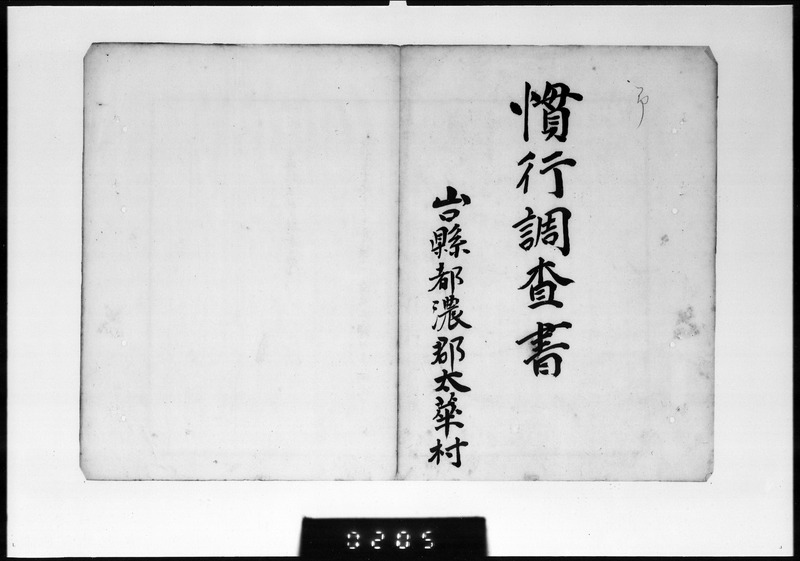 慣行調查書
山口縣都濃郡太華村
0205